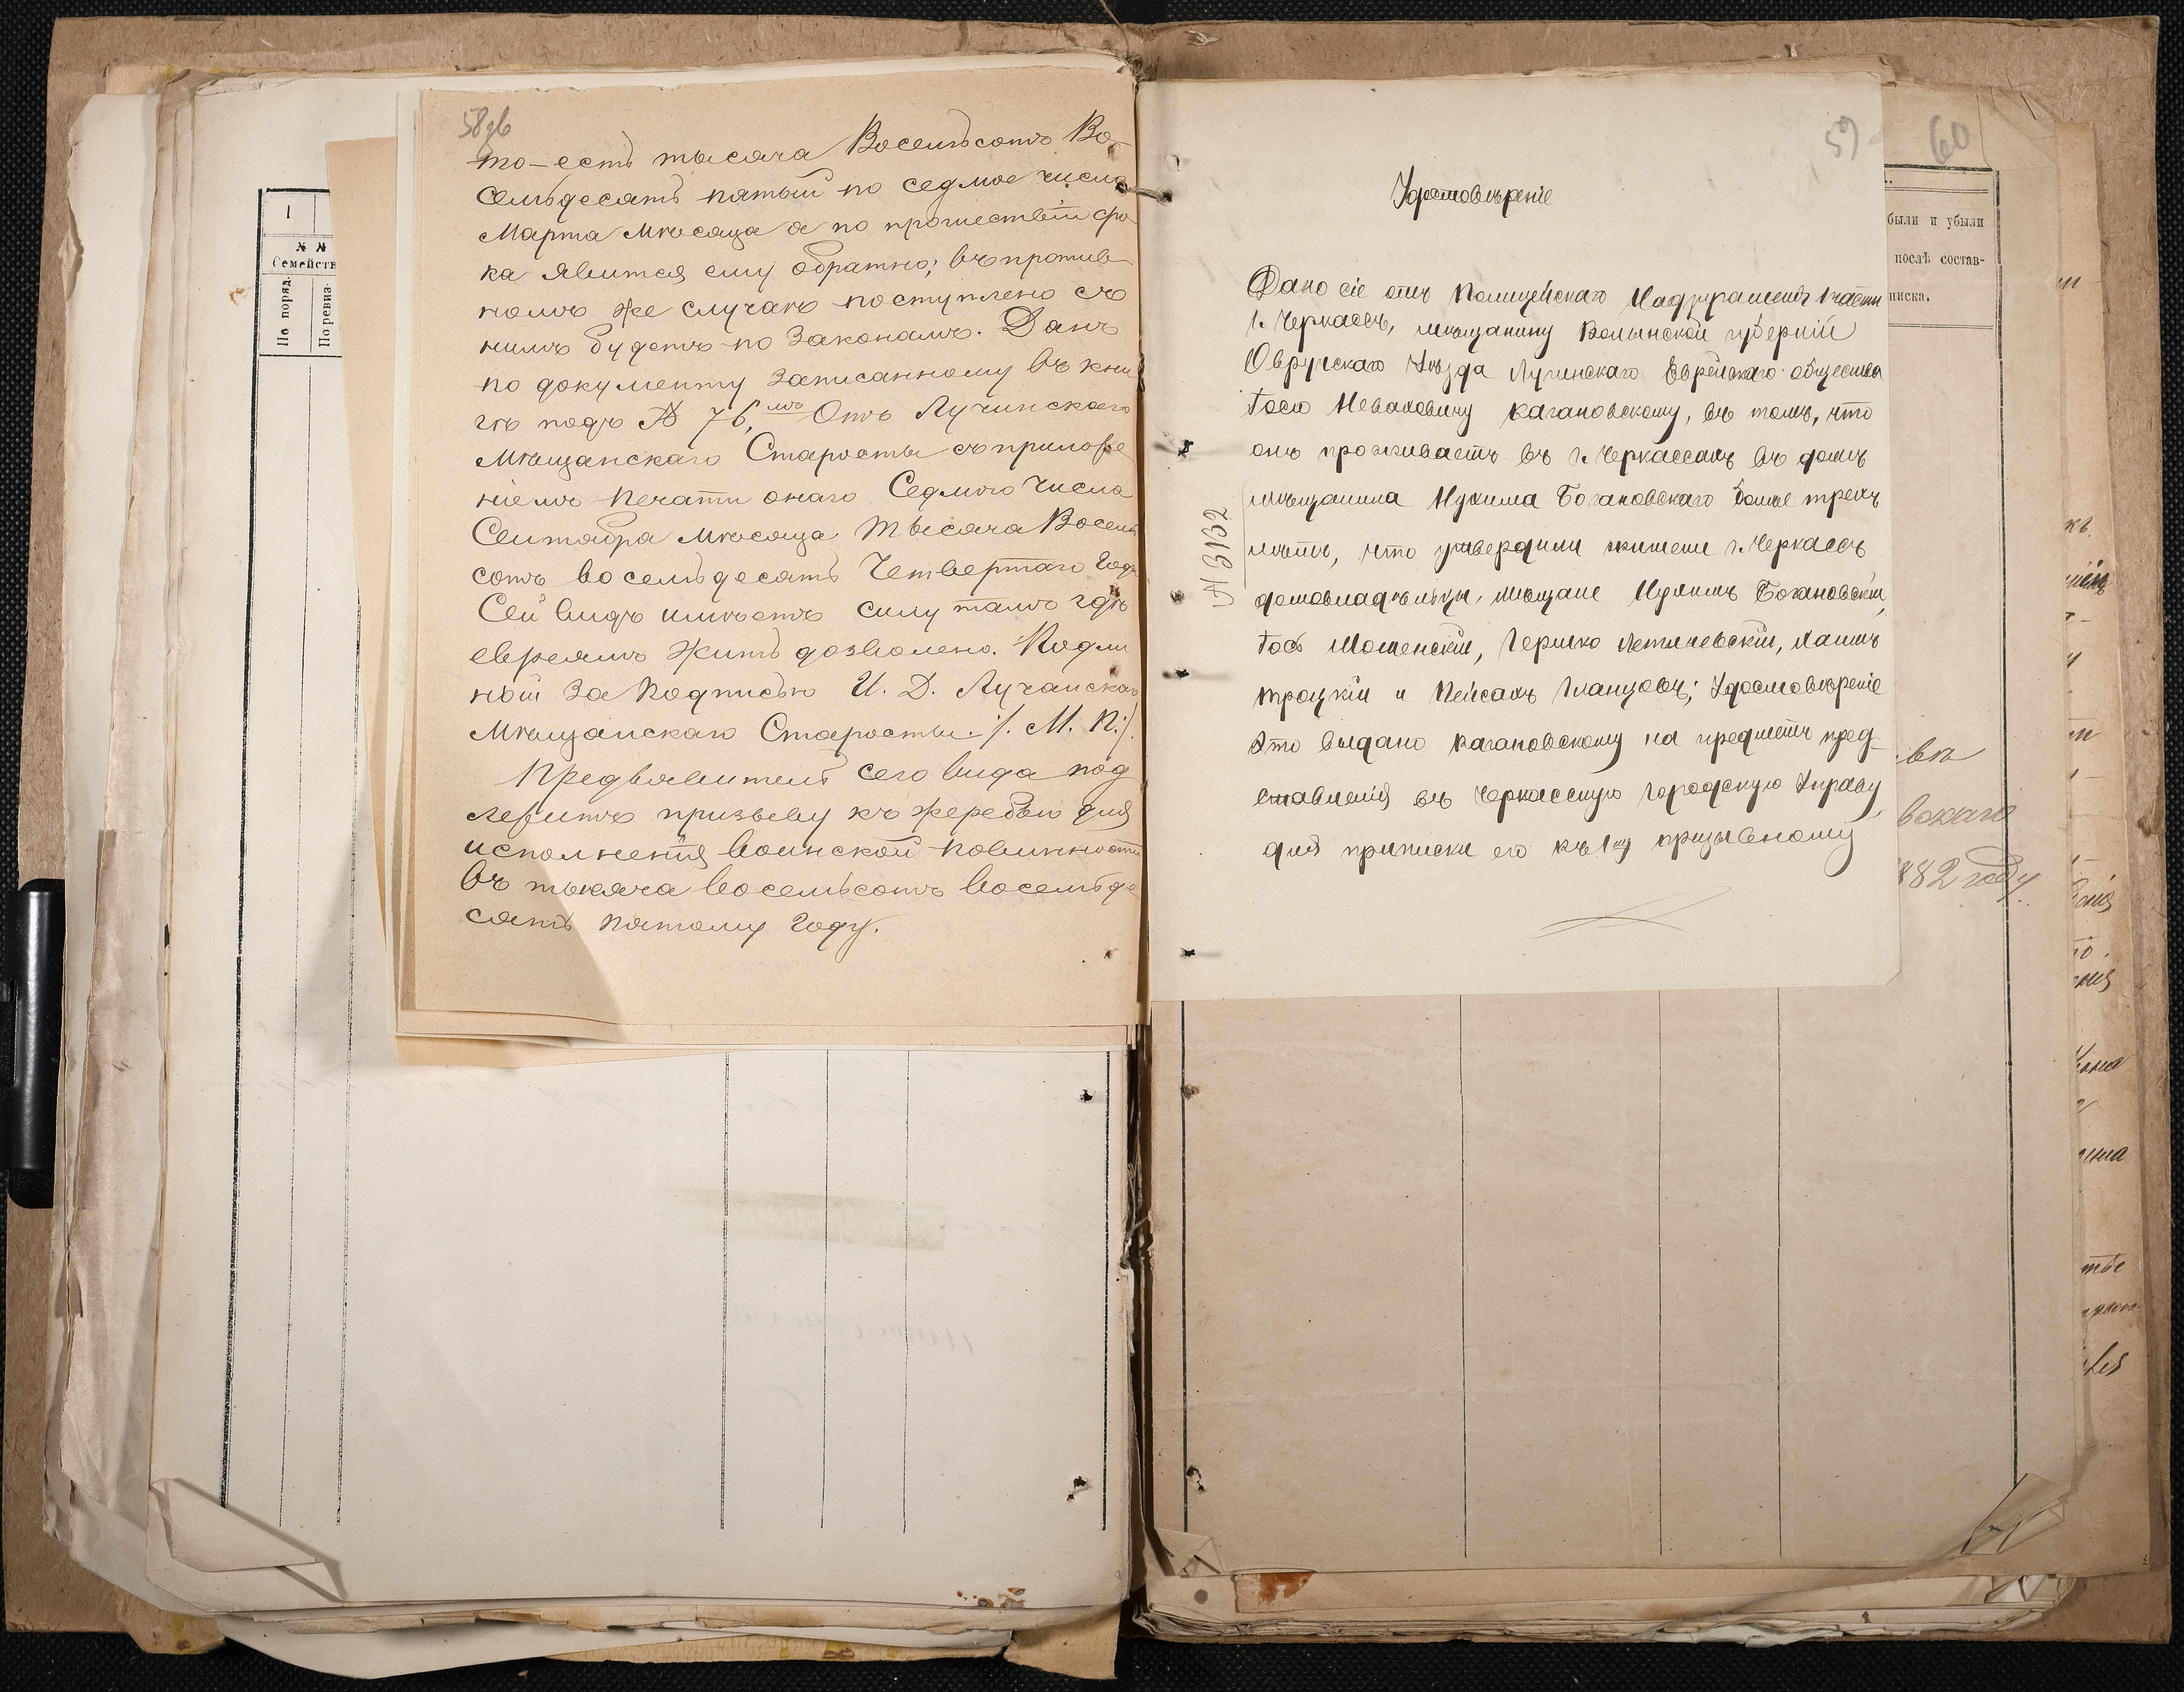 58об
то-есть тысяча Восемьсотъ Во-
семьдесятъ пятый по седмое число
Марта Мѣсяца а по прошествіи сро
ка явится ему обратно; въ против
номъ же случаѣ поступлено съ
нимъ будетъ по Законамъ. Данъ
по документу записанному въ кни
гѣ подъ № 76,мъ Отъ Лучинскаго
Мѣщанскаго Старосты съ приложе
ніемъ печати онаго Седмого Числа
Сентября Мѣсяца Тысяча Восемь
сотъ восемьдесятъ Четвертаго Года
Сей видъ имѣетъ силу тамъ гдѣ
евреямъ жить дозволено. Подли
ной За Подписью И. Д. Лучанскаго
Мѣщанскаго Старосты :/. М. П. :/
Предъявитель сего вида под
лежитъ призыву къ жеребью для
исполненія воинской повинности
въ тысяча восемьсотъ восемьде
сятъ пятому году.
1
№ №
Семейств
По поряд.
По ревиз.
59
60
Удостовѣреніе
Дано сіе отъ Полицейскаго Надзирателя 1 части
г. Черкассъ, мѣщанину Волынской губерніи
Овручскаго Уѣзда Лугинскаго Еврейскаго общества
Іосю Неваховичу Кагановскому, въ томъ, что
онъ проживаетъ въ г. Черкассахъ въ домѣ
мѣщанина Нухима Богановскаго болѣе трехъ
лѣтъ, что утвердили жители г. Черкассъ
домовладѣльцы, мѣщане Нухимъ Бокановскій,
Іось Мошенскій, Гершко Летичевскій, Хаимъ
Троцкій и Пейсахъ Гланцовъ; Удостовѣреніе
это выдано Кагановскому на предметъ пред-
ставленія въ Черкасскую Городскую Управу,
для приписки его къ 1му призывному
№ 3132
были и убыли
послѣ состав-
писка.
вокаго
882 году.